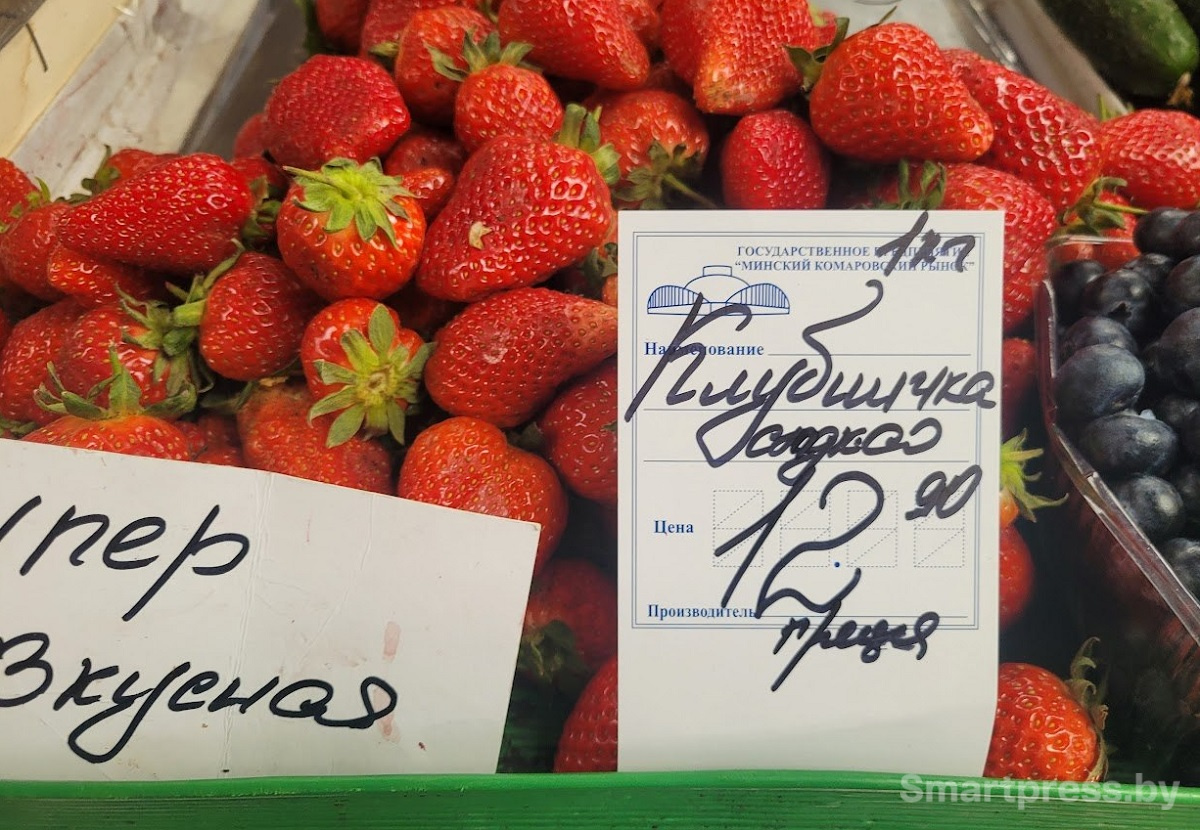 ГОСУДАРСТВЕННОЕ ПРЕДПРИЯТИЕ
"МИНСКИЙ КОМАРОВСКИЙ РЫНОК"
Наименование
Клубничка
сладкая
Цена
12.90
Производитель
Греция
упер
Вкусная
Smartpress.by